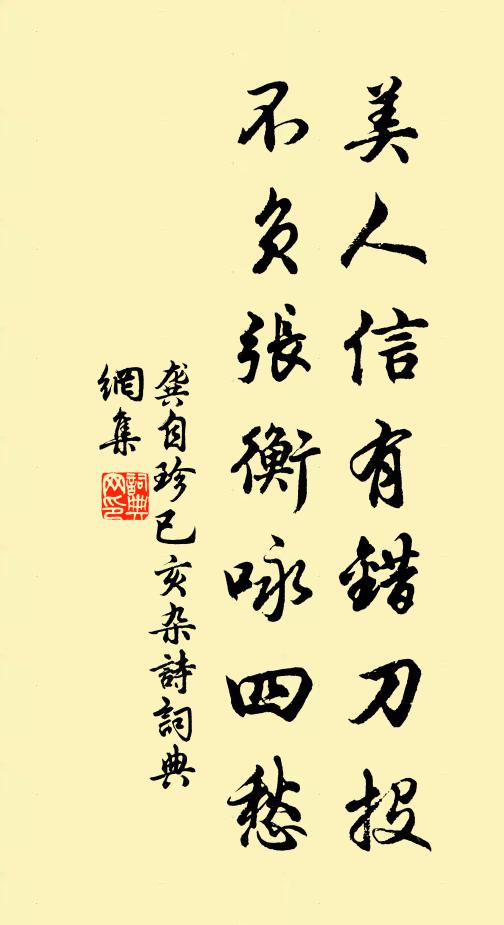 美人信有錯刀投
不負張衡咏四愁
龔自珍己亥杂詩詞典
網集
詞典
网印